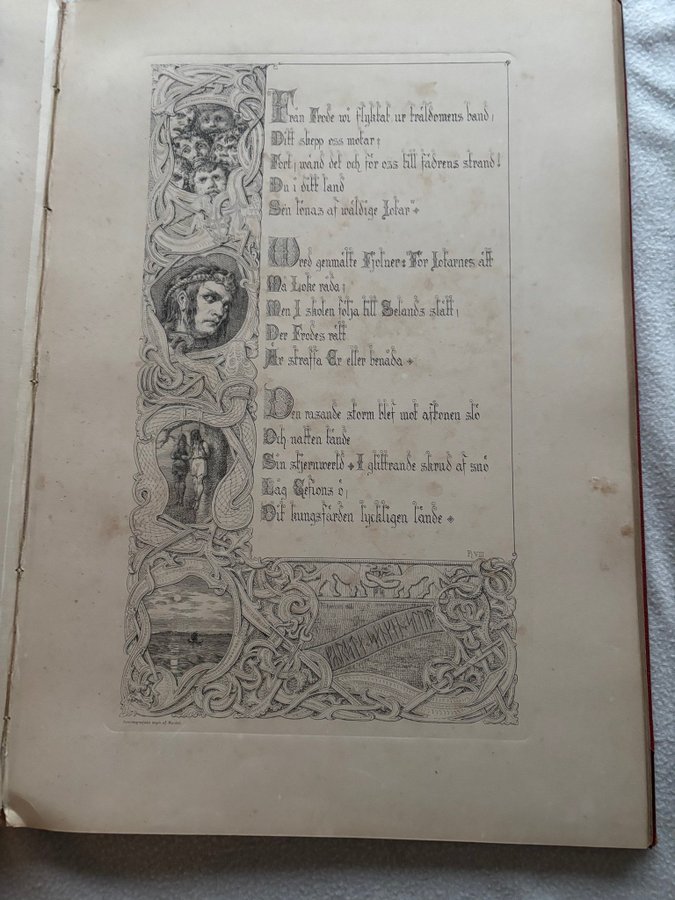 Från Frode wi flyktat ur träldomens band;
Ditt skepp oss motar;
Fort, wänd det och för oss till fädrens strand!
Du i ditt land
Sen lönas af wäldige Jotar"
Wred genmälte Fjolner: "För Jotarnes ätt
Må Loke råda;
Men I skolen följa till Selands slätt;
Der Frodes rätt
Är straffa Er eller benåda
Den rasande storm blef mot aftonen slö
Och natten tände
Sin stjernwerld I glittrande skrud af snö
Låg Gefions ö;
Dit kungsfärden lyckligen lände
Pl. VIII